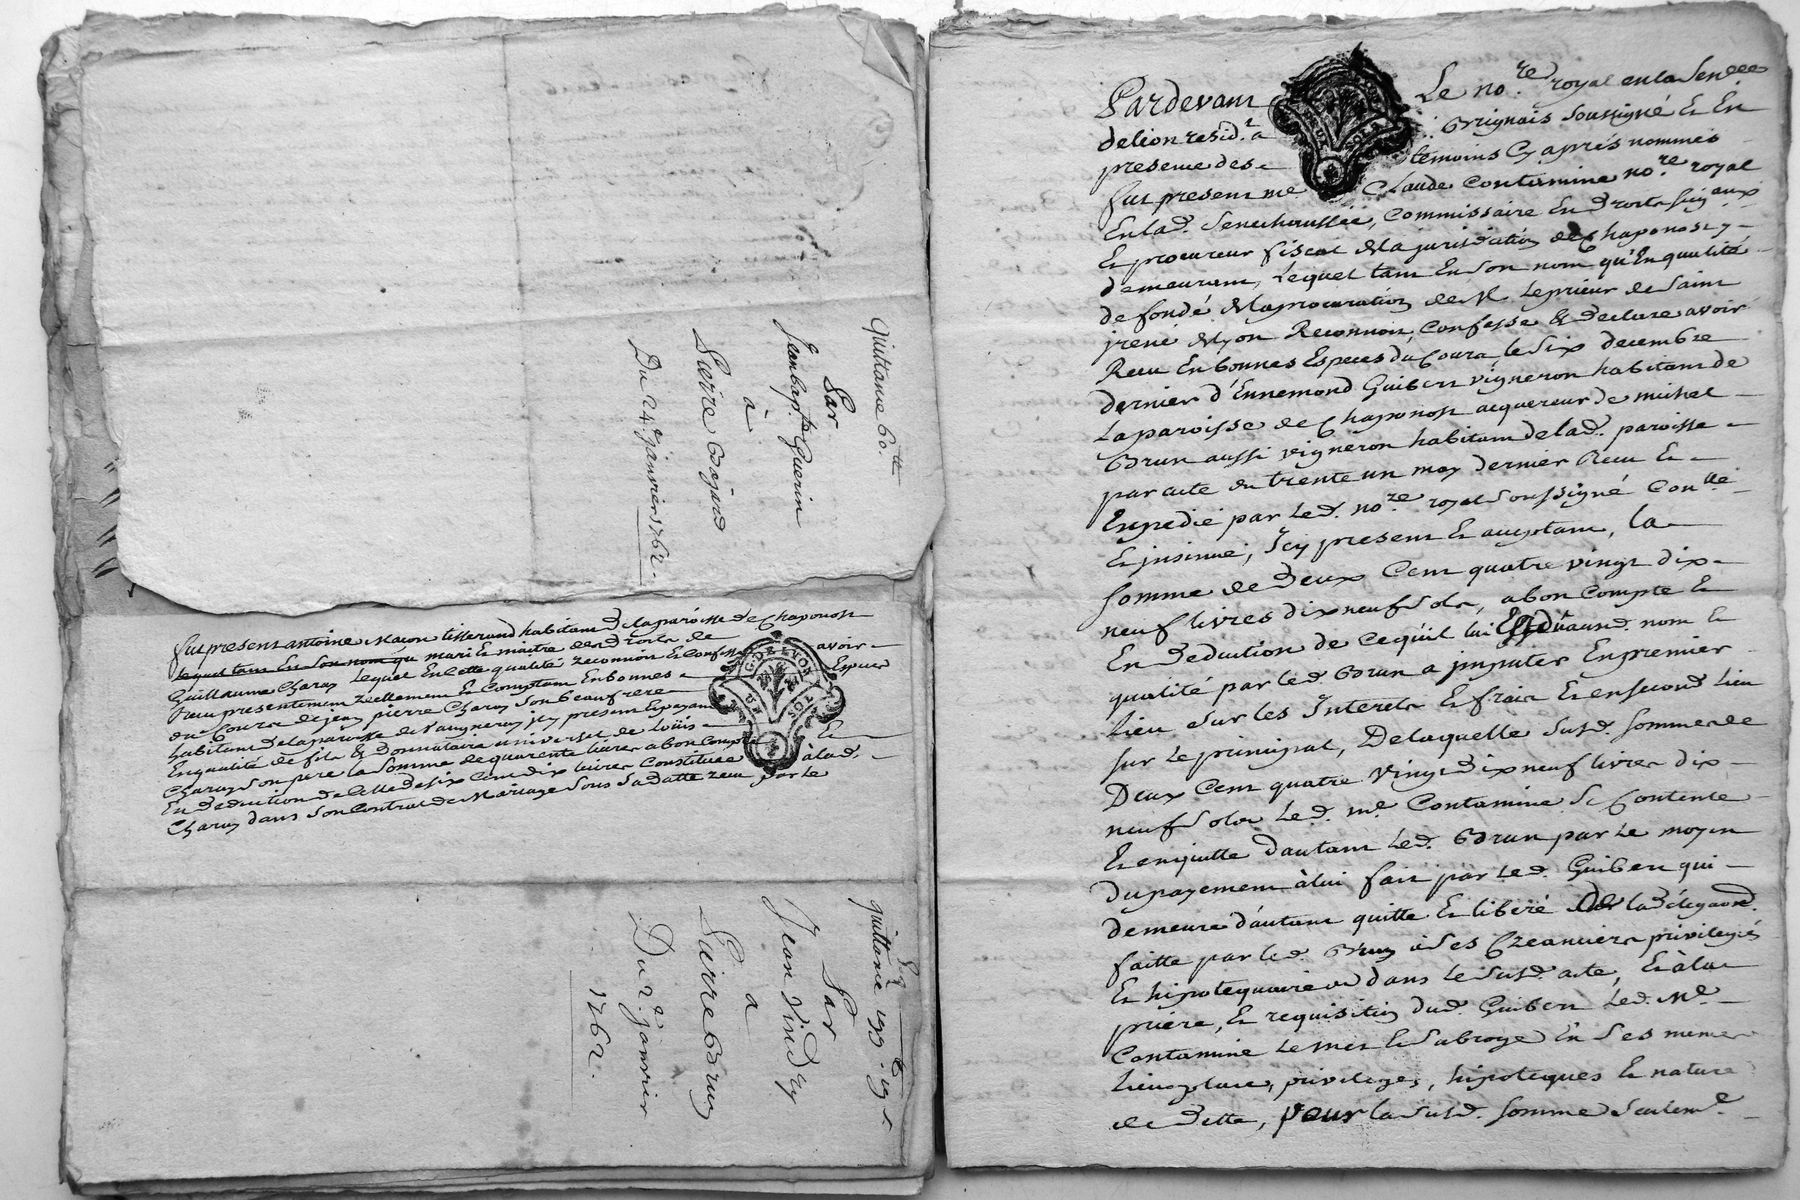 Quittance 60.tt
Par
Jeanbapte Guerin
à
Pierre Bojard
Du 24e janvier 1762.
fut present antoine Macon tisserand habitant de la paroisse de Chaponost
lequel tant En Son nom qu mari & maitre des droits de
Guillauma Charuy Lequel En Cette qualité reconnoit & Confesse avoir
Reçu presentement reellement & Comptant En bonnes Especes
du Cours de jean pierre Charuy Son beaufrere
habitant de la paroisse de Vaugneray icy present & payant
En qualité de fils & Donnataire universel de Loüis Et
Charuy Son pere la Somme de quarente livres a bon Compte
En Deduction de Celle de Six Cent dix livres Constituée à lad.
Charuy dans Son Contrat de Mariage Sous Sa datte reçu par le
G. DE LYON
quittance 199.tt 19s
Par
Jean Vindry
a
Pierre Brun
Du 2e janvier
1762.
Pardevant Le nore royal en la Senéee
de lion residt a Brignais Soussigné & En
presence des temoins Cy aprés nommés
fut present me Claude Contamine nore royal
En lad. Senechaussée, Commissaire En droits Seigaux
Et procureur fiscal de la jurisdiction de Chaponost y
demeurant, Lequel tant En Son nom qu'En qualité
de fondé de la procuration de M Le prieur de Saint
jrené de lyon Reconnoit, Confesse & declare avoir
Reçu En bonnes Especes du Cours le Six decembre
dernier d'Ennemond Guibert vigneron habitant de
La paroisse de Chaponost acquereur de michel
Brun aussi vigneron habitant de lad. paroisse
par acte du trente un may dernier Reçu Et
Expedié par Led. nore royal Soussigné Contllé
Et jnsinué, Jcy present Et acceptant, la
Somme de Deux Cent quatre vingt dix
neuf livres dix neuf Sols, a bon Compte Et
En Deduction de Ce qu'il lui Est dû aud. nom Et
qualité par led. Brun a jmputer En premier
Lieu Sur les Interets & frais Et en Second Lieu
Sur Le principal, De laquelle Susd. Somme de
Deux Cent quatre vingt dix neuf livres dix
neuf Sols Led. me Contamine Se Contente
Et en quitte d'autant Led. Brun par Le moyen
du payement à lui fait par Led. Guibert qui
demeure d'autant quitte Et liberé de la delegaon
faitte par Led. Brun à Ses Creanciers privilegiés
Et hipotequaires dans Le Susd. acte, Et à la
priere, Et requisition dud. Guibert Led. Me
Contamine Le met Et Subroge En Ses memes
Lieu, place, privileges, hipoteques Et nature
de Dette, pour la Susd. Somme Seulemt